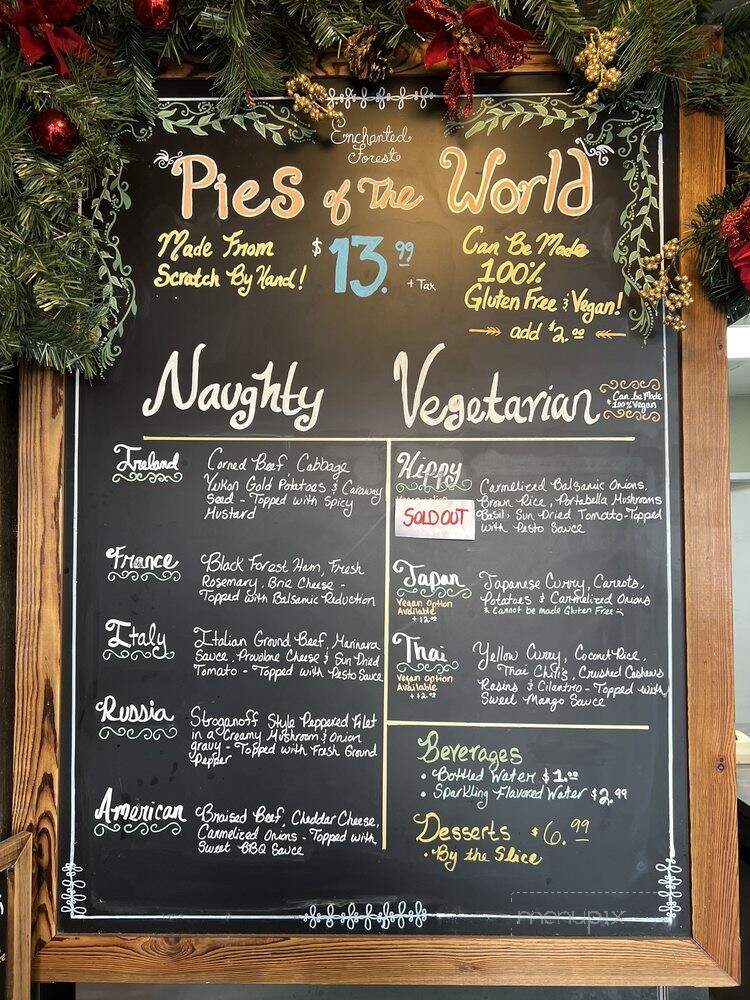 Enchanted
Forest
"Pies of The World"
Made From
Scratch By Hand!
$13.99
+ Tax
Can Be Made
100%
Gluten Free & Vegan!
add $2.00
Naughty
Ireland
Corned Beef, Cabbage
Yukon Gold Potatoes & Caraway
Seed - Topped with Spicy
Mustard
France
Black Forest Ham, Fresh
Rosemary, Brie Cheese -
Topped with Balsamic Reduction
Italy
Italian Ground Beef, Marinara
Sauce, Provolone Cheese & Sun Dried
Tomato - Topped with Pesto Sauce
Russia
Stroganoff Style Peppered Filet
in a Creamy Mushroom & Onion
gravy - Topped with Fresh Ground
Pepper
American
Braised Beef, Cheddar Cheese,
Carmelized Onions - Topped with
Sweet BBQ Sauce
Vegetarian
Can be Made
100% Vegan
Hippy
SOLD OUT
Carmelized Balsamic Onions,
Brown Rice, Portabella Mushrooms
Basil, Sun Dried Tomato - Topped
with Pesto Sauce
Japan
Vegan Option
Available
+
Japanese Curry, Carrots,
Potatoes & Carmelized Onions
* Cannot be made Gluten Free
Thai
Vegan Option
Available
+
Yellow Curry, Coconut Rice,
Thai Chilis, Crushed Cashews
Rasins & Cilantro - Topped with
Sweet Mango Sauce
Beverages
• Bottled Water $1.00
• Sparkling Flavored Water $2.99
Desserts $6.99
• By the Slice
menupix